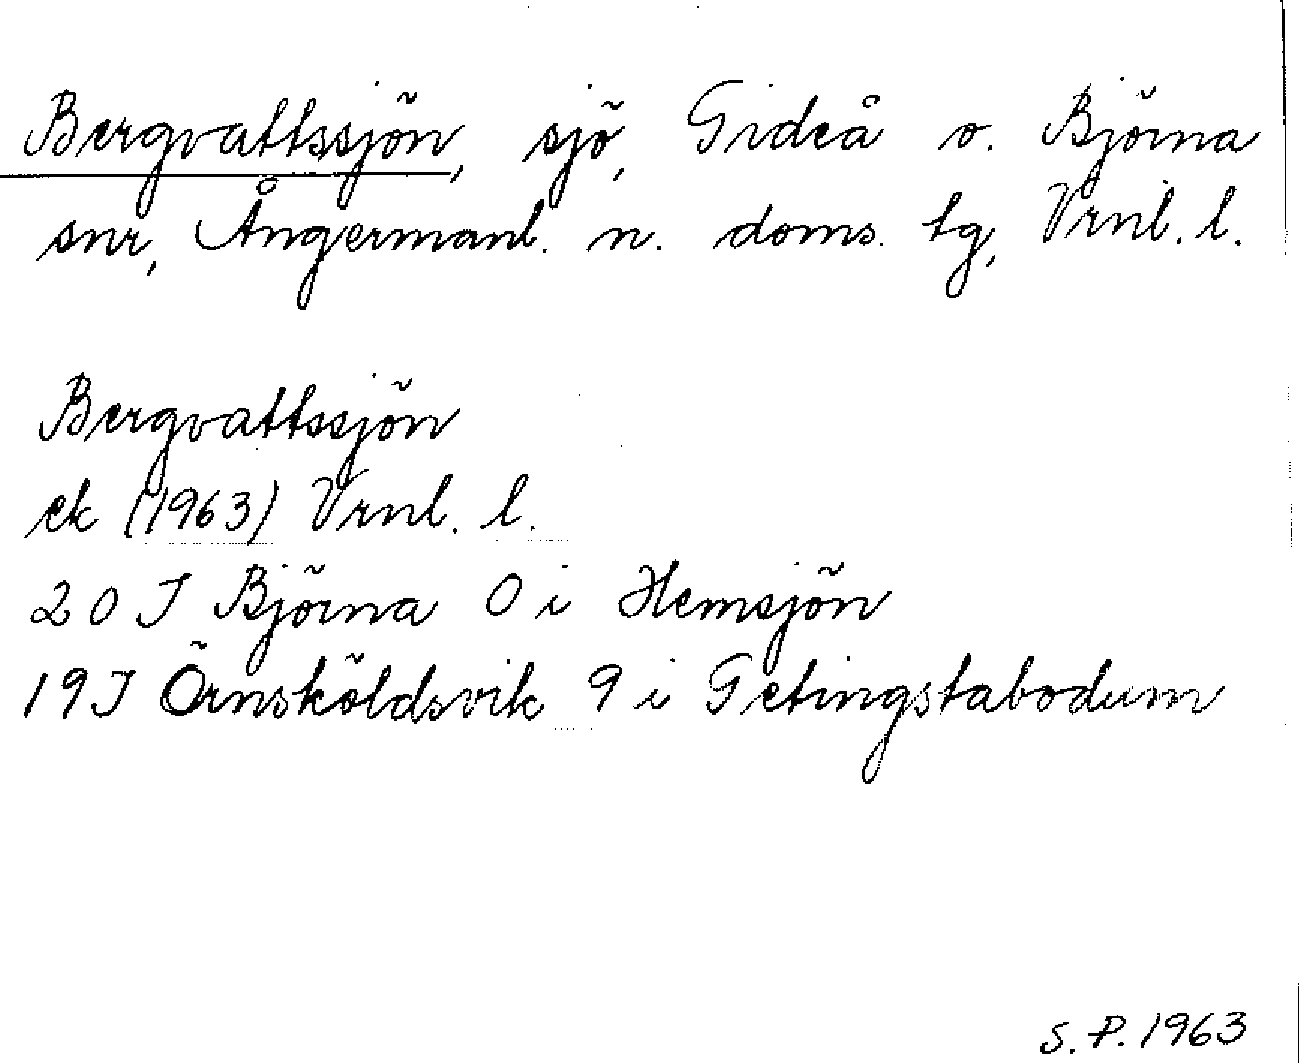 Bergvattssjön, sjö, Gideå o. Björna
snr, Ångermanl. n. doms. tg, Vrnl. l.
Bergvattssjön
ek (1963) Vrnl. l.
20 J Björna 0 i Hemsjön
19J Örnsköldsvik 9 i Getingstabodum
S. P. 1963